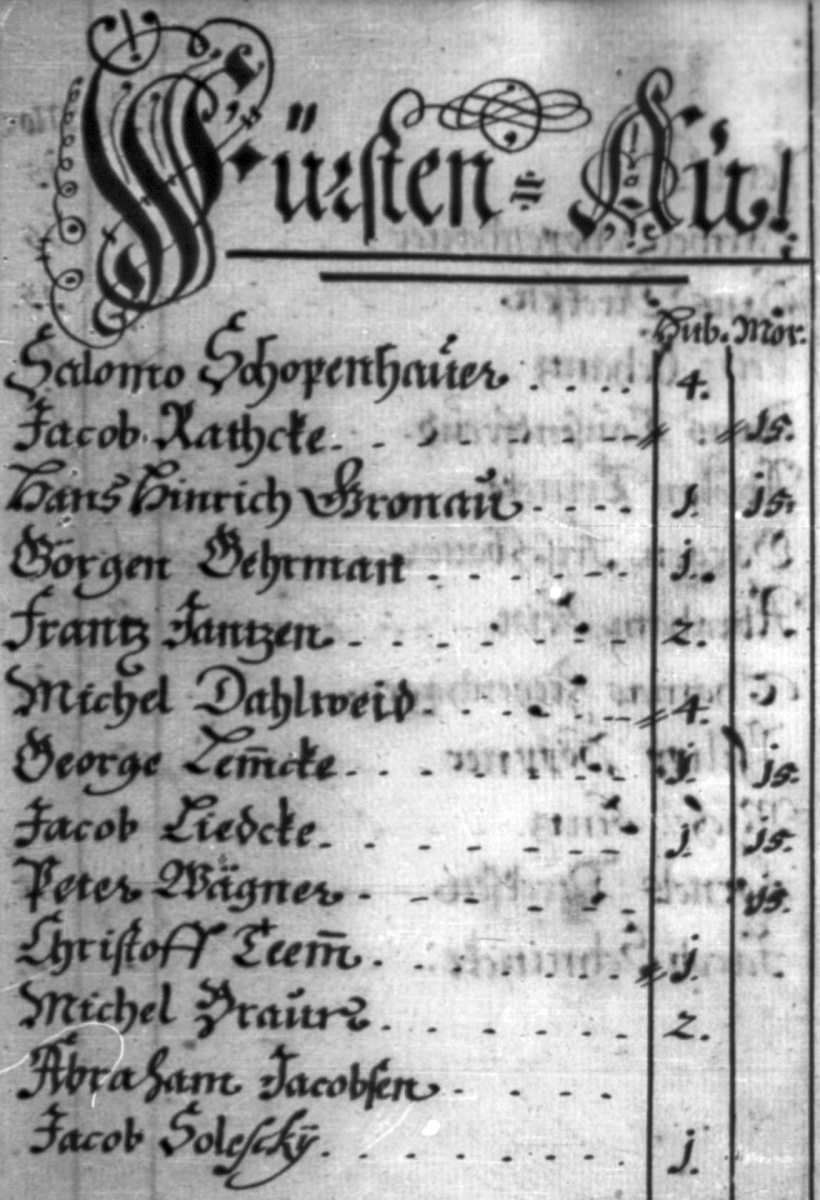 Fürsten = Aü!
Hub. Mor.
Salomo Schopenhaüer . . . . 4.
Jacob Rathcke - - - - - - - 15.
Hans Hinrich Gronaü . . . . 1. 15.
Görgen Gehrman . . . . . 1.
Frantz Jantzen . . . . . . 2.
Michel Dahlweid . . . . . 4.
George Lem̄cke . . . . . . 1. 15.
Jacob Liedcke . . . . . . 1. 15.
Peter Wägner . . . . . 15.
Christoff Teem̄ . . . . . . 1.
Michel Braün . . . . . . 2.
Abraham Jacobsen . . . .
Jacob Solesckÿ . . . . . . . 1.